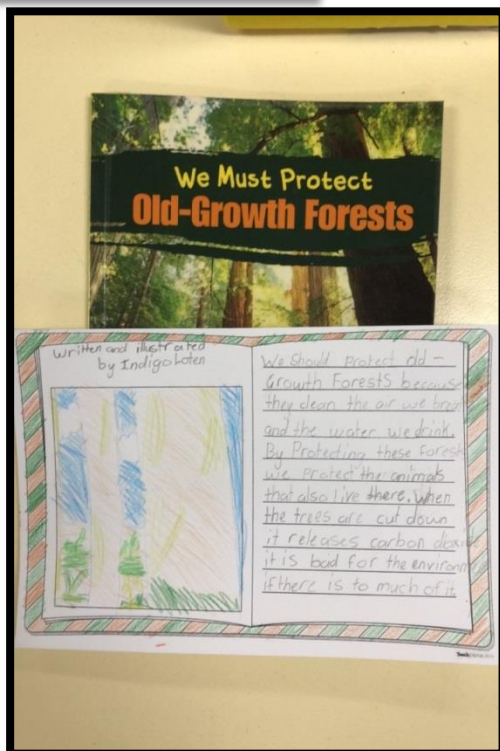 We Must Protect
Old-Growth Forests
Written and illustrated
by Indigo Loten
We Should protect old-
Growth Forests because
they clean the air we brea
and the water we drink.
By Protecting these Forest
we Protect the animals
that also live there. When
the trees are cut down
it releases carbon dioxi
it is bad for the environm
if there is to much of it.